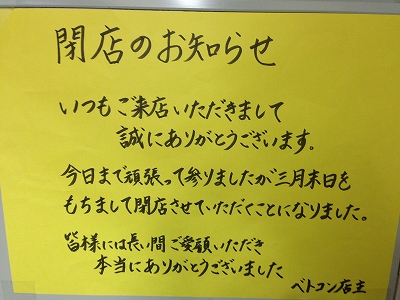 閉店のお知らせ
いつもご来店いただきまして
誠にありがとうございます。
今日まで頑張って参りましたが三月末日を
もちまして閉店させていただくことになりました。
皆様には長い間ご愛顧いただき
本当にありがとうございました
ベトコン店主